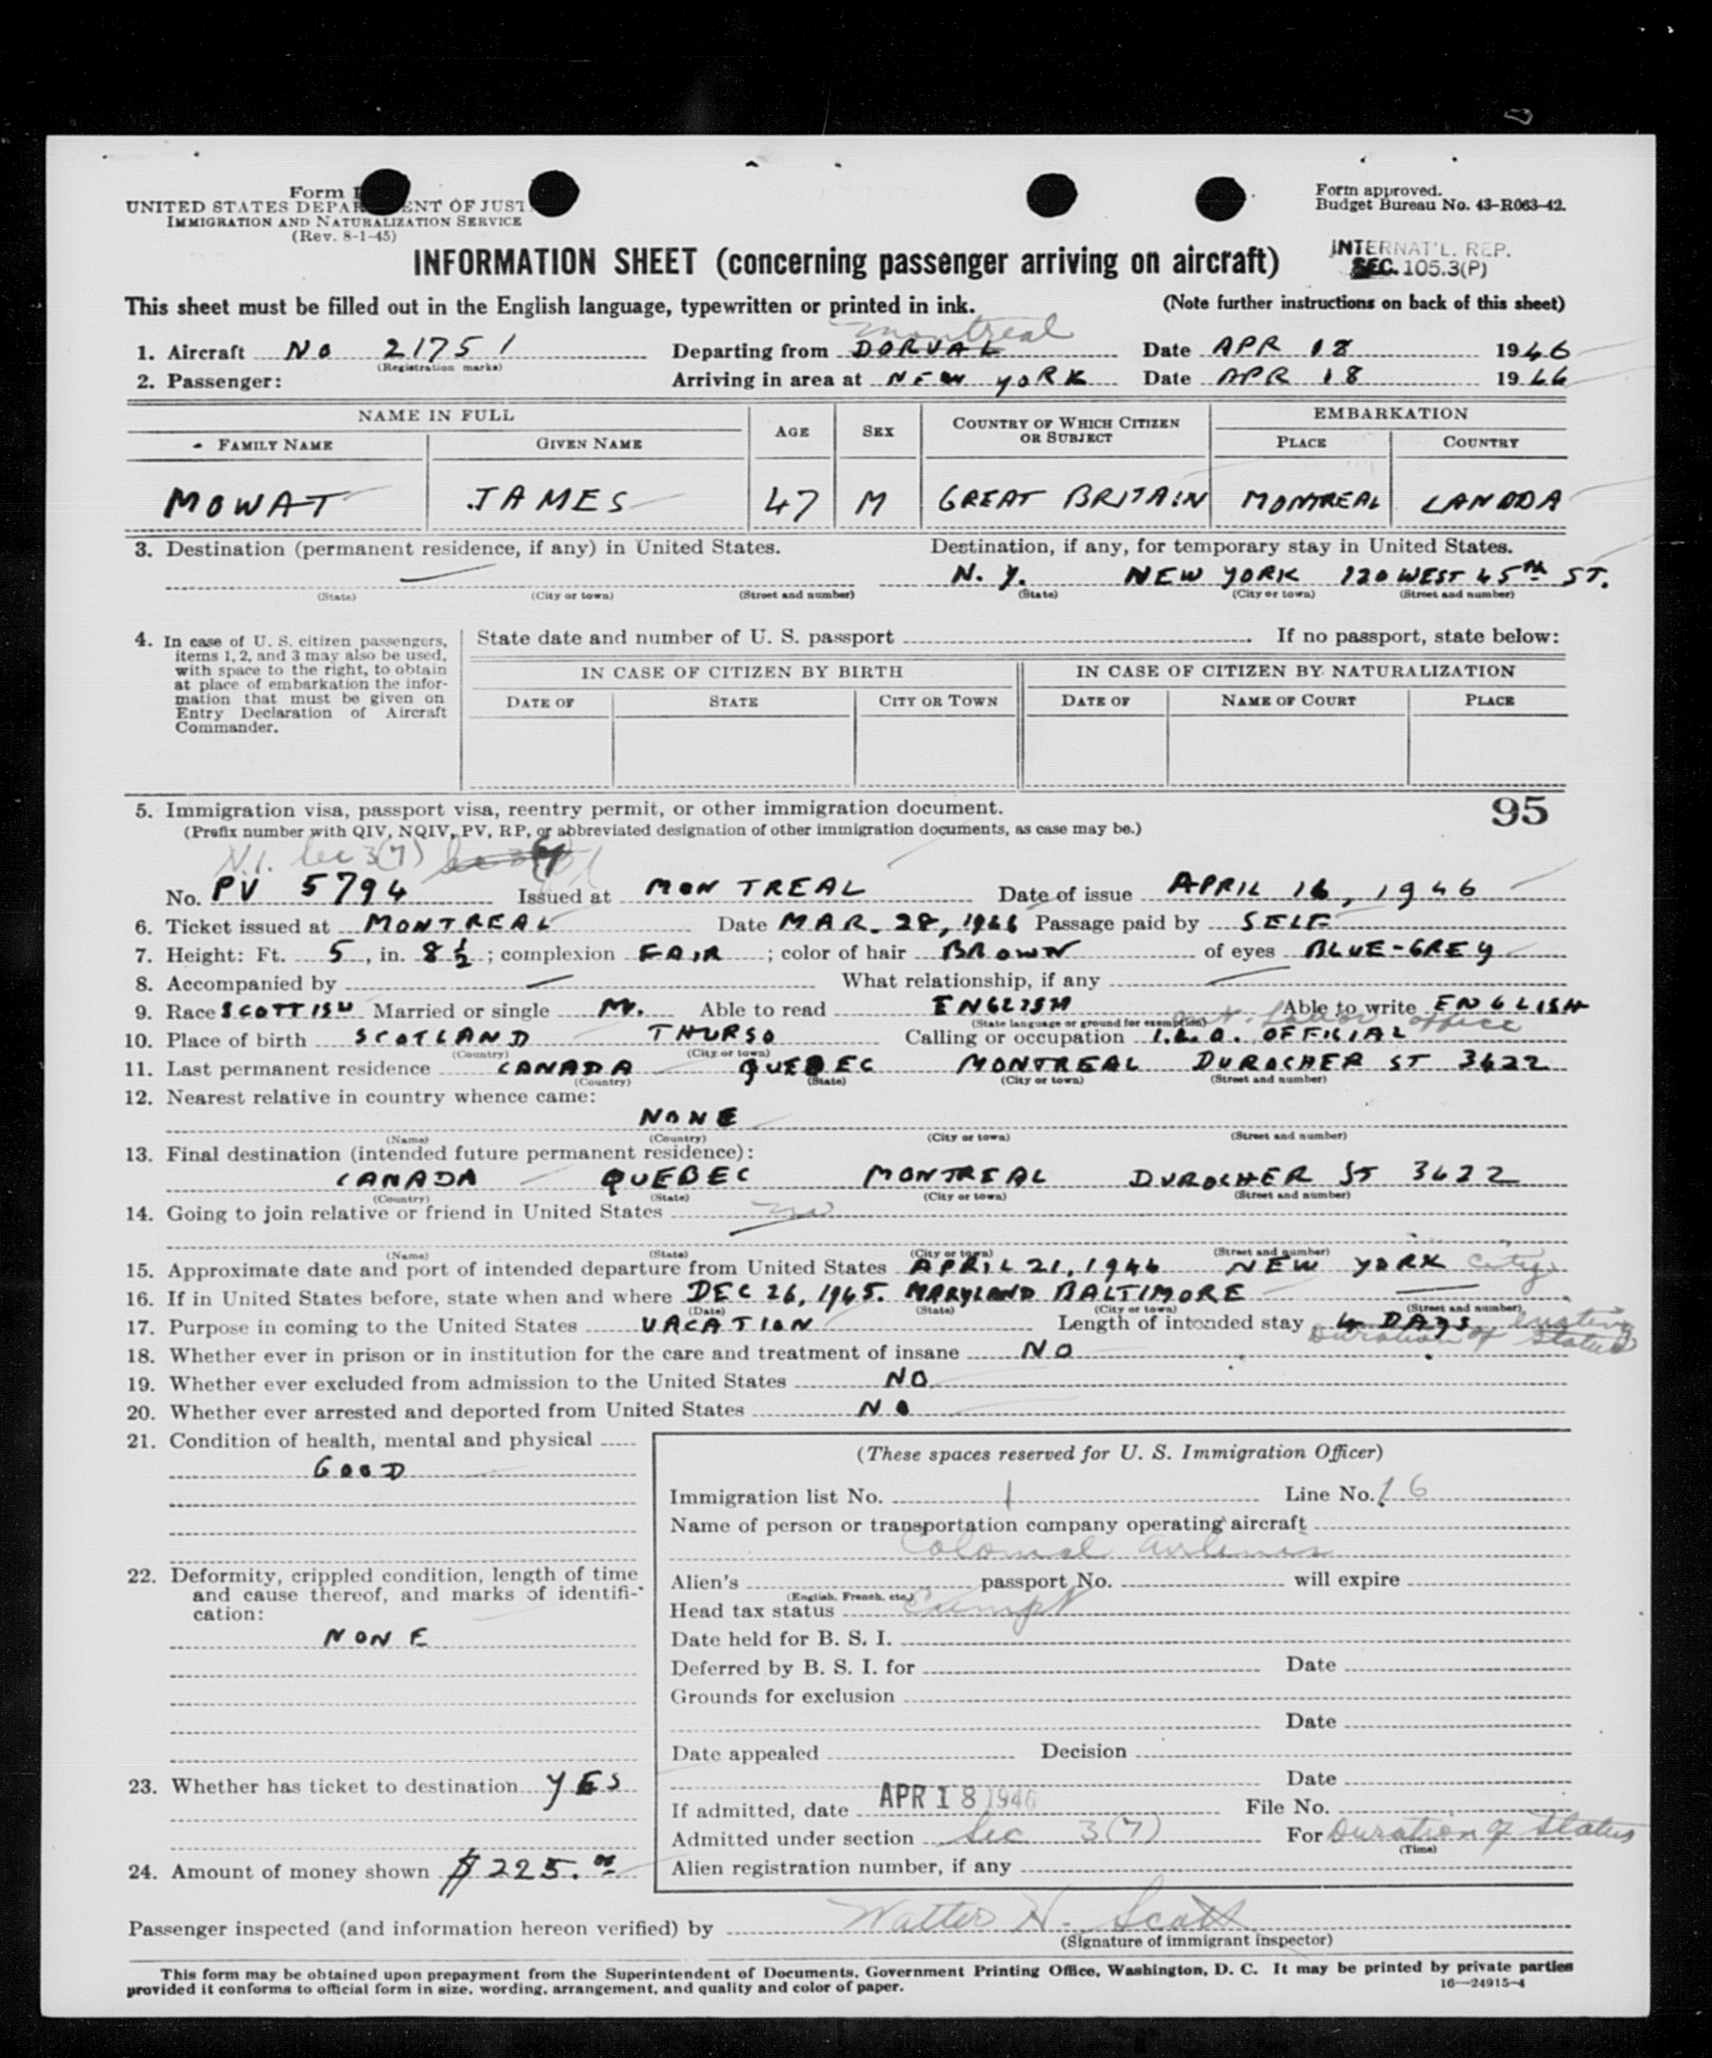 Form I
UNITED STATES DEPAR ENT OF JUST
IMMIGRATION AND NATURALIZATION SERVICE
(Rev. 8-1-45)
Form approved.
Budget Bureau No. 43-R063-42.
INTERNAT'L. REP.
SEC. 105.3(P)
INFORMATION SHEET (concerning passenger arriving on aircraft)
This sheet must be filled out in the English language, typewritten or printed in ink. (Note further instructions on back of this sheet)
Montreal
1. Aircraft No 21751 Departing from DORVAL Date APR 18 1946
(Registration marks)
2. Passenger: Arriving in area at NEW YORK Date APR 18 1946
NAME IN FULL AGE SEX COUNTRY OF WHICH CITIZEN OR SUBJECT EMBARKATION
FAMILY NAME GIVEN NAME PLACE COUNTRY
MOWAT JAMES 47 M GREAT BRITAIN MONTREAL CANADA
3. Destination (permanent residence, if any) in United States. Destination, if any, for temporary stay in United States.
N.Y. NEW YORK 120 WEST 45TH ST.
(State) (City or town) (Street and number) (State) (City or town) (Street and number)
4. In case of U. S. citizen passengers, items 1, 2, and 3 may also be used, with space to the right, to obtain at place of embarkation the information that must be given on Entry Declaration of Aircraft Commander.
State date and number of U. S. passport If no passport, state below:
IN CASE OF CITIZEN BY BIRTH IN CASE OF CITIZEN BY NATURALIZATION
DATE OF STATE CITY OR TOWN DATE OF NAME OF COURT PLACE
5. Immigration visa, passport visa, reentry permit, or other immigration document. 95
(Prefix number with QIV, NQIV, PV, RP, or abbreviated designation of other immigration documents, as case may be.)
N.I. Sec 3(7)
No. PV 5794 Issued at MONTREAL Date of issue APRIL 16, 1946
6. Ticket issued at MONTREAL Date MAR. 28, 1946 Passage paid by SELF
7. Height: Ft. 5, in. 8 1/2; complexion FAIR; color of hair BROWN of eyes BLUE-GREY
8. Accompanied by — What relationship, if any —
9. Race SCOTTISH Married or single M. Able to read ENGLISH Able to write ENGLISH
(State language or ground for exemption) Int. Labor office
10. Place of birth SCOTLAND THURSO Calling or occupation I.L.O. OFFICIAL
(Country) (City or town)
11. Last permanent residence CANADA QUEBEC MONTREAL DUROCHER ST 3622
(Country) (State) (City or town) (Street and number)
12. Nearest relative in country whence came:
NONE
(Name) (Country) (City or town) (Street and number)
13. Final destination (intended future permanent residence):
CANADA QUEBEC MONTREAL DUROCHER ST 3622
(Country) (State) (City or town) (Street and number)
14. Going to join relative or friend in United States no
(Name) (State) (City or town) (Street and number)
15. Approximate date and port of intended departure from United States APRIL 21, 1946 NEW YORK City
16. If in United States before, state when and where DEC 26, 1945. MARYLAND BALTIMORE —
(Date) (State) (City or town) (Street and number)
17. Purpose in coming to the United States VACATION Length of intended stay 4 DAYS
Duration of Status
18. Whether ever in prison or in institution for the care and treatment of insane NO
19. Whether ever excluded from admission to the United States NO
20. Whether ever arrested and deported from United States NO
21. Condition of health, mental and physical
GOOD
22. Deformity, crippled condition, length of time and cause thereof, and marks of identification:
NONE
23. Whether has ticket to destination YES
24. Amount of money shown $225.00
(These spaces reserved for U. S. Immigration Officer)
Immigration list No. 1 Line No. 16
Name of person or transportation company operating aircraft
Colonial Airlines
Alien's passport No. will expire
(English, French, etc.)
Head tax status Exempt
Date held for B. S. I.
Deferred by B. S. I. for Date
Grounds for exclusion
Date
Date appealed Decision
Date
If admitted, date APR 18 1946 File No.
Admitted under section Sec 3(7) For Duration of Status
(Time)
Alien registration number, if any
Passenger inspected (and information hereon verified) by Walter H. Scott
(Signature of immigrant inspector)
This form may be obtained upon prepayment from the Superintendent of Documents, Government Printing Office, Washington, D. C. It may be printed by private parties
provided it conforms to official form in size, wording, arrangement, and quality and color of paper. 16—24915-4